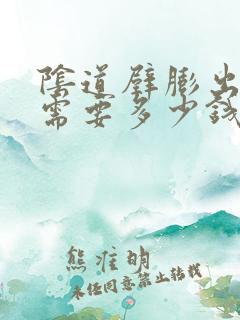 陰道壁膨出
需要多少錢
熊淮明
未经同意禁止转载